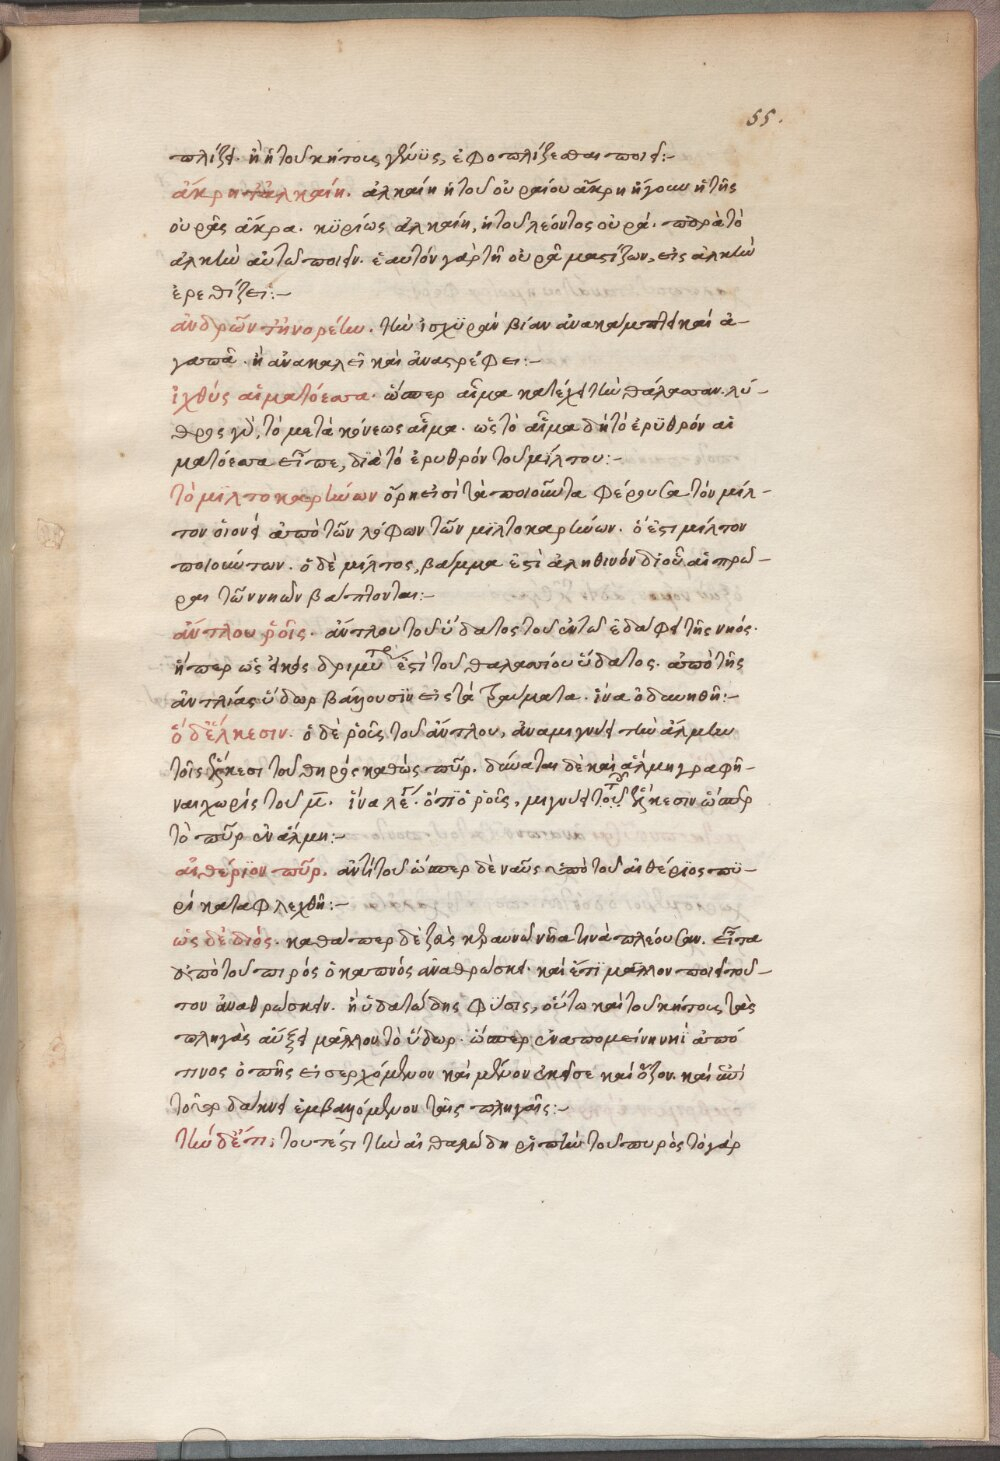 55.
πλίζει. ἢ ἡ τοῦ κήτους γένυς, ἐφοπλίζεσθαι ποιεῖ:-
ἄκρη τ' ἀλκαίη. ἀλκαίη ἡ τοῦ οὐραίου ἄκρη ἤγουν ἡ τῆς
οὐρᾶς ἄκρα. κϋρίως ἀλκαίη, ἡ τοῦ λέοντος οὐρά. παρὰ τὸ
ἀλκὴν αὐτῶ ποιεῖν. ἑαυτὸν γὰρ τῇ οὐρᾷ μαστίζων, εἰς ἀλκὴν
ἐρεθίζει:-
ἀνδρῶν τ' ἠνορέην. τὴν ἰσχϋρὰν βίαν ἀνακάμπτει καὶ ἀ-
γαπᾶ. ἢ ἀνακαλεῖ καὶ ἀναστρέφει:-
ἰχθύς αἱματόεσσα. ὥσπερ αἷμα κατέχει τὴν θάλασσαν. λύ-
θρος γὰρ, τὸ μετὰ κόνεως αἷμα. ὡς τὸ αἷμα δὴ τὸ ἐρϋθρόν αἱ
ματόεσσα εἶπε, διὰ τὸ ἐρυθρόν τοῦ μίλτου:-
τὸ μϊλτοκαρήνων ὄρη εἰσὶ τὰ ποιοῦντα φέρουσα τὸν μίλ-
τον οἱονεὶ ἀπὸ τῶν λόφων τῶν μϊλτοκαρήνων. ὅ ἐστι μίλτον
ποιούντων. ὁ δὲ μίλτος, βάμμα ἐστὶ ἀληθινόν δι' οὗ αἱ πρῶ-
ραι τῶν νηῶν βάπτονται:-
ἄντλου ῥόῖς. ἄντλου τοῦ ὕδατος τοῦ ἐν τῶ ἐδάφει τῆς νηός.
ἥπερ ὡς ἐκεῖ δριμύτερόν ἐστὶ τοῦ θαλασσίου ὕδατος. ἀπὸ τῆς
ἀντλίας ὕδωρ βάλλουσϊν εἰς τὰ τραύματα. ἵνα ὀδυνηθῇ:-
ὁ δ' ἕλκεσιν. ὁ δὲ ῥόῖς τοῦ ἄντλου, ἀναμιγνύει τὴν ἅλμην
τοῖς ἕλκεσι τοῦ θηρός καθὼς πῦρ. δύναται δὲ καὶ ἅλμη γραφῆ-
ναι χωρίς τοῦ μ̅. ἵνα λέγη. ὅτϊ ὁ ῥόῖς, μιγνύει τοῖς ἕλκεσιν ὥσπερ
τὸ πῦρ ἐν ἅλμη:-
αἰθέριον πῦρ. ἀντὶ τοῦ ὥσπερ δὲ ναῦς ὑπὸ τοῦ αἰθέρϊος πϋ-
ρὶ καταφλεχθῇ:-
ὡς δὲ διός. καθάπερ δὲ ζεὺς κεραυνῶ νῆα τινὰ πλέουσαν. εἶτα
ὑπὸ τοῦ πυρός ὁ καπνός ἀναθρώσκει. καὶ ἔτϊ μᾶλλον ποιεῖ τοῦ-
τον ἀναθρώσκειν. ἡ ὑδατώδης φύσις, οὕτω καὶ τοῦ κήτους τὰς
πληγὰς αὔξει μᾶλλον τὸ ὕδωρ. ὥσπερ ἐναπομείνη νηῒ ἀπό
τινος ὀπῆς εἰσερχόμενον καὶ μένον ἐκεῖσε καὶ ὄζον. καὶ
τοῦτο δάκνει ἐμβαλλόμενον ταῖς πληγαῖς:-
τὴν δ' ἔτι. τουτέστι τὴν αἰθαλώδη ῥιπὴν τοῦ πυρός τὸ γὰρ